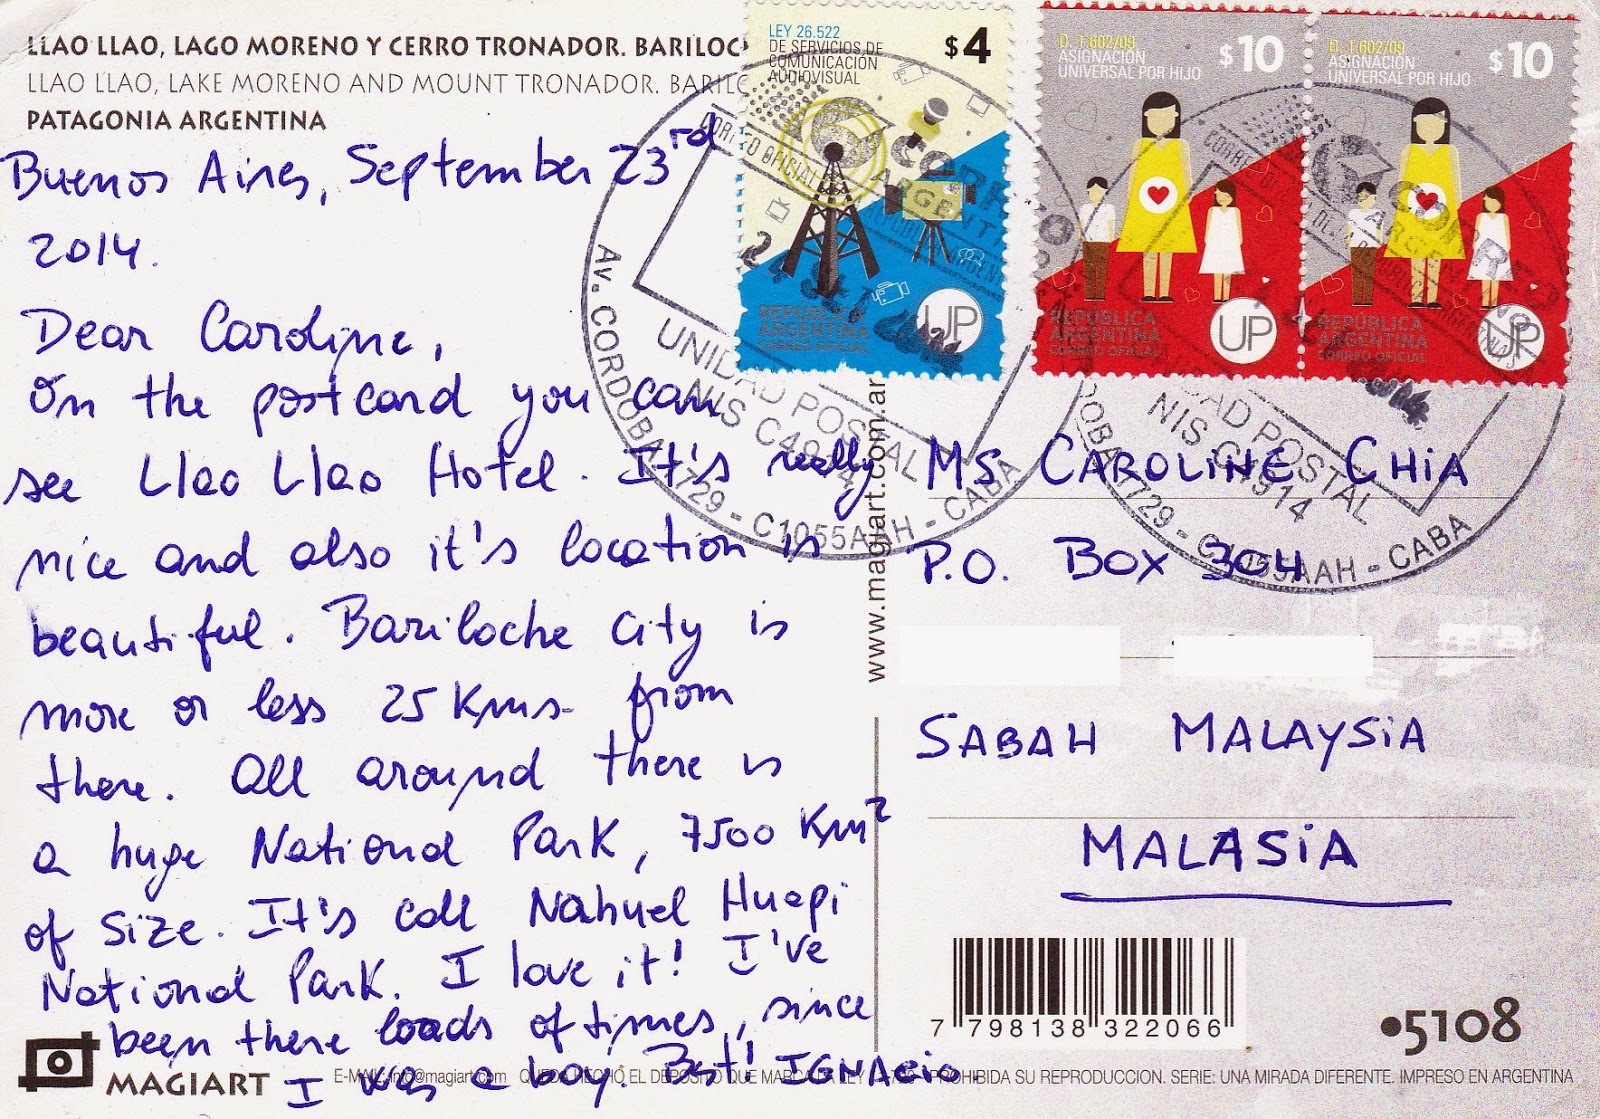 LLAO LLAO, LAGO MORENO Y CERRO TRONADOR. BARILOC
LLAO LLAO, LAKE MORENO AND MOUNT TRONADOR. BARILO
PATAGONIA ARGENTINA
Buenos Aires, September 23rd
2014.
Dear Caroline,
On the postcard you can
see Llao Llao Hotel. It's really
nice and also it's location is
beautiful. Bariloche city is
more or less 25 Kms from
there. All around there is
a huge National Park, 7500 Km²
of size. It's call Nahuel Huapi
National Park. I love it! I've
been there loads of times, since
I was a boy. Best! IGNAcio.
LEY 26.522
DE SERVICIOS DE
COMUNICACIÓN
AUDIOVISUAL
$4
REPÚBLICA
ARGENTINA
CORREO OFICIAL
UP
D. 1.602/09
ASIGNACIÓN
UNIVERSAL POR HIJO
$10
REPÚBLICA
ARGENTINA
CORREO OFICIAL
UP
D. 1.602/09
ASIGNACIÓN
UNIVERSAL POR HIJO
$10
REPÚBLICA
ARGENTINA
CORREO OFICIAL
UP
UNIDAD POSTAL
NIS C4914
Av. CORDOBA 1729 - C1055AAH - CABA
UNIDAD POSTAL
NIS C4914
DOBA 1729 - C1055AAH - CABA
www.magiart.com.ar
MS CAROLINE CHIA
P.O. BOX 304
SABAH MALAYSIA
MALASIA
7 798138 322066
•5108
MAGIART
E-MAIL: info@magiart.com QUEDA HECHO EL DEPOSITO QUE MARCA LA LEY PROHIBIDA SU REPRODUCCION. SERIE: UNA MIRADA DIFERENTE. IMPRESO EN ARGENTINA